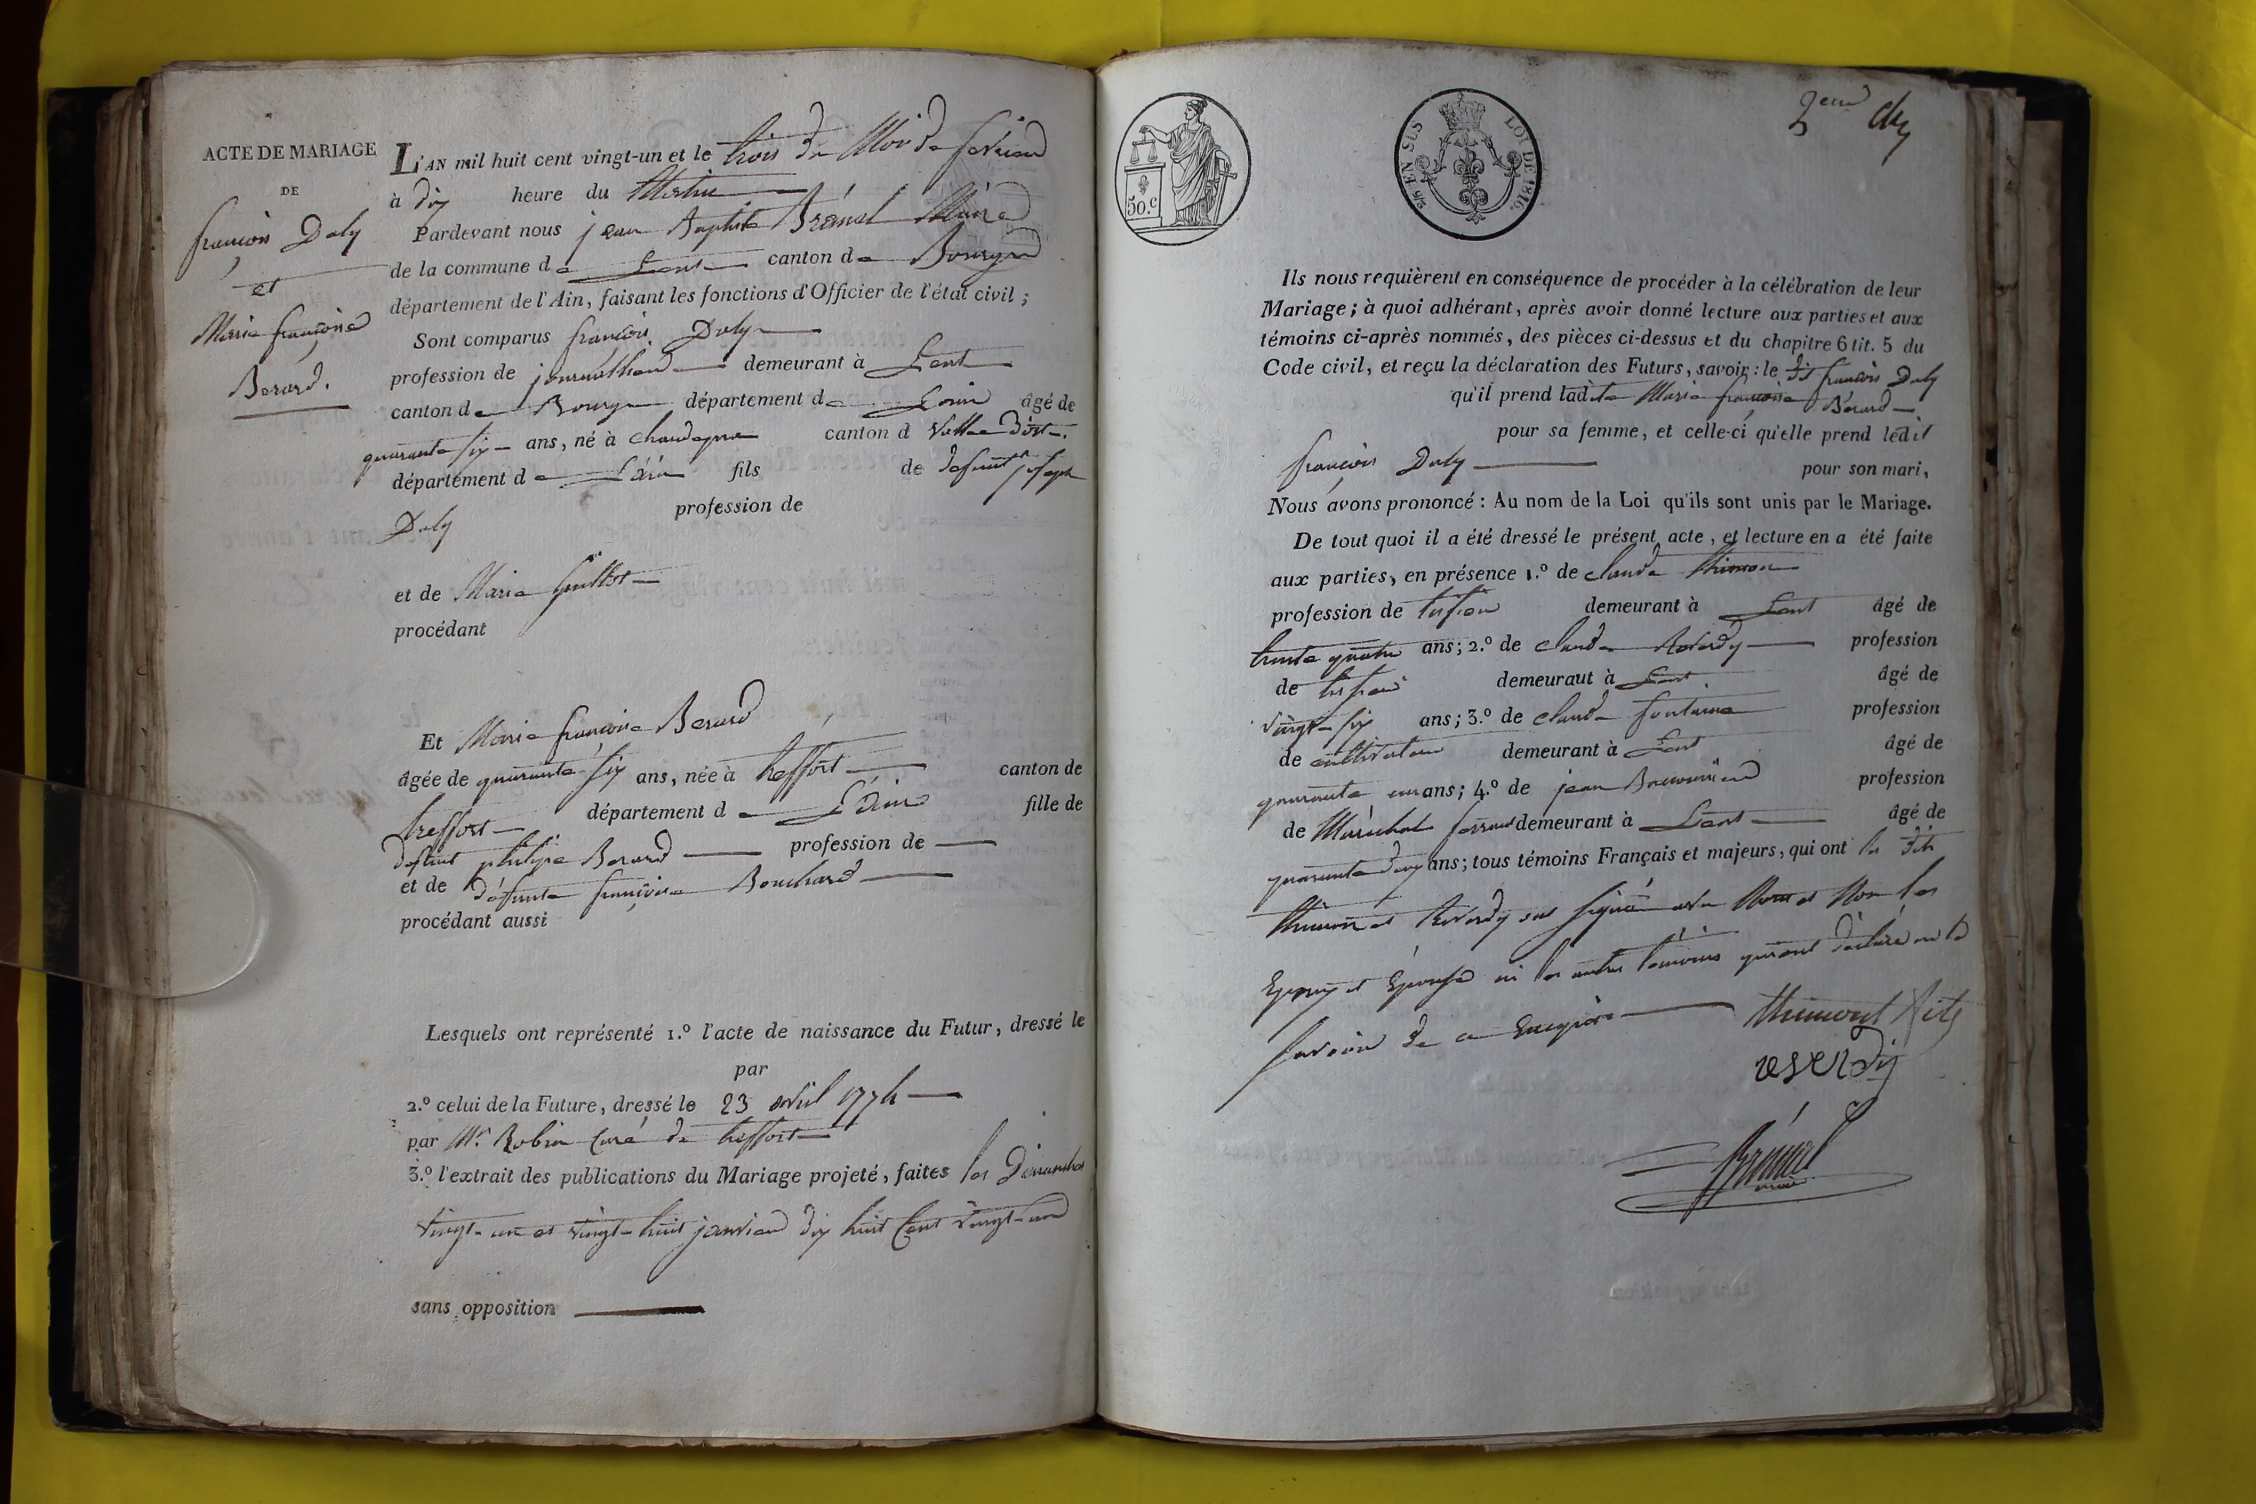 ACTE DE MARIAGE
DE
françois Daly
et
Marie françoise
Berard.
L'AN mil huit cent vingt-un et le trois du Mois de fevrier
à dix heure du Matin
Pardevant nous jean Baptiste Brémal Maire
de la commune de Lent canton de Bourg
département de l'Ain, faisant les fonctions d'Officier de l'état civil ;
Sont comparus françois Daly
profession de journallier demeurant à Lent
canton de Bourg département de Lain âgé de
quarante six ans, né à canton d
département de Lain fils de defunt joseph
Daly profession de
et de Marie Guillot
procédant
Et Marie françoise Berard
âgée de quarante six ans, née à treffort canton de
treffort département de L'ain fille de
defunt philipe Berard profession de
et de défunte françoise Bouchard
procédant aussi
Lesquels ont représenté 1.º l'acte de naissance du Futur, dressé le
par
2.º celui de la Future, dressé le 23 avril 1774
par Mr. Robin Curé de treffort
3.º l'extrait des publications du Mariage projeté, faites les Dimanches
vingt-un et vingt-huit janvier dix huit Cent vingt-un
sans opposition
50.c
2/10 EN SUS
LOI DE 1816.
Ils nous requièrent en conséquence de procéder à la célébration de leur
Mariage ; à quoi adhérant, après avoir donné lecture aux parties et aux
témoins ci-après nommés, des pièces ci-dessus et du chapitre 6 tit. 5 du
Code civil, et reçu la déclaration des Futurs, savoir : le dit françois Daly
qu'il prend ladite Marie françoise Bérard
pour sa femme, et celle-ci qu'elle prend ledit
françois Daly pour son mari,
Nous avons prononcé : Au nom de la Loi qu'ils sont unis par le Mariage.
De tout quoi il a été dressé le présent acte, et lecture en a été faite
aux parties, en présence 1.º de claude thimon
profession de demeurant à Lent âgé de
trente quatre ans ; 2.º de claude Reverdy profession
de demeurant à Lent âgé de
vingt-six ans ; 3.º de claude fontaine profession
de cultivateur demeurant à Lent âgé de
quarante ans ; 4.º de jean profession
de Maréchal ferrant demeurant à Lent âgé de
quarante deux ans ; tous témoins Français et majeurs, qui ont les dits
thimon et Reverdy ont signé avec Nous et Non les
Epoux et Epouse ni les autres témoins qui ont déclaré ne le
savoir de ce Enquis
reverdy
Brémal
maire